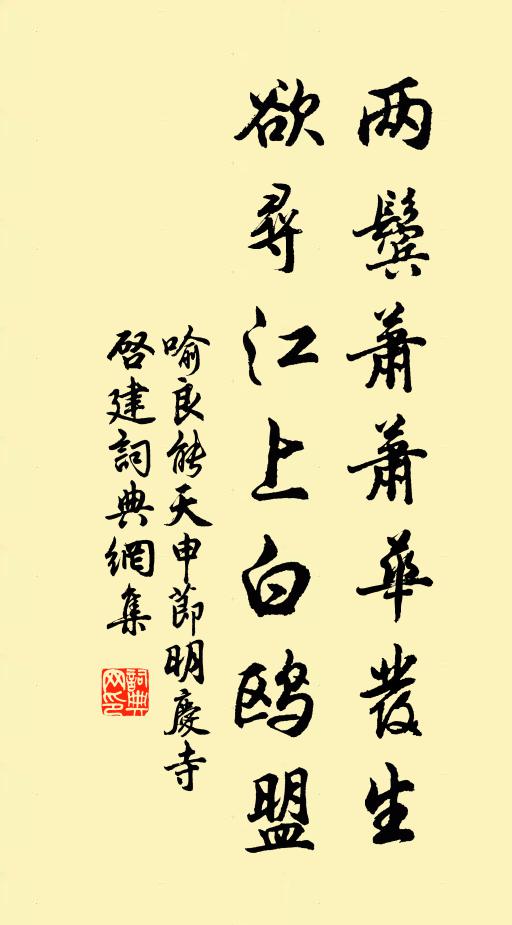 两鬢蕭蕭華发生
欲尋江上白鸥盟
喻良能天申節明慶寺
啓建詞典網集
詞典网印